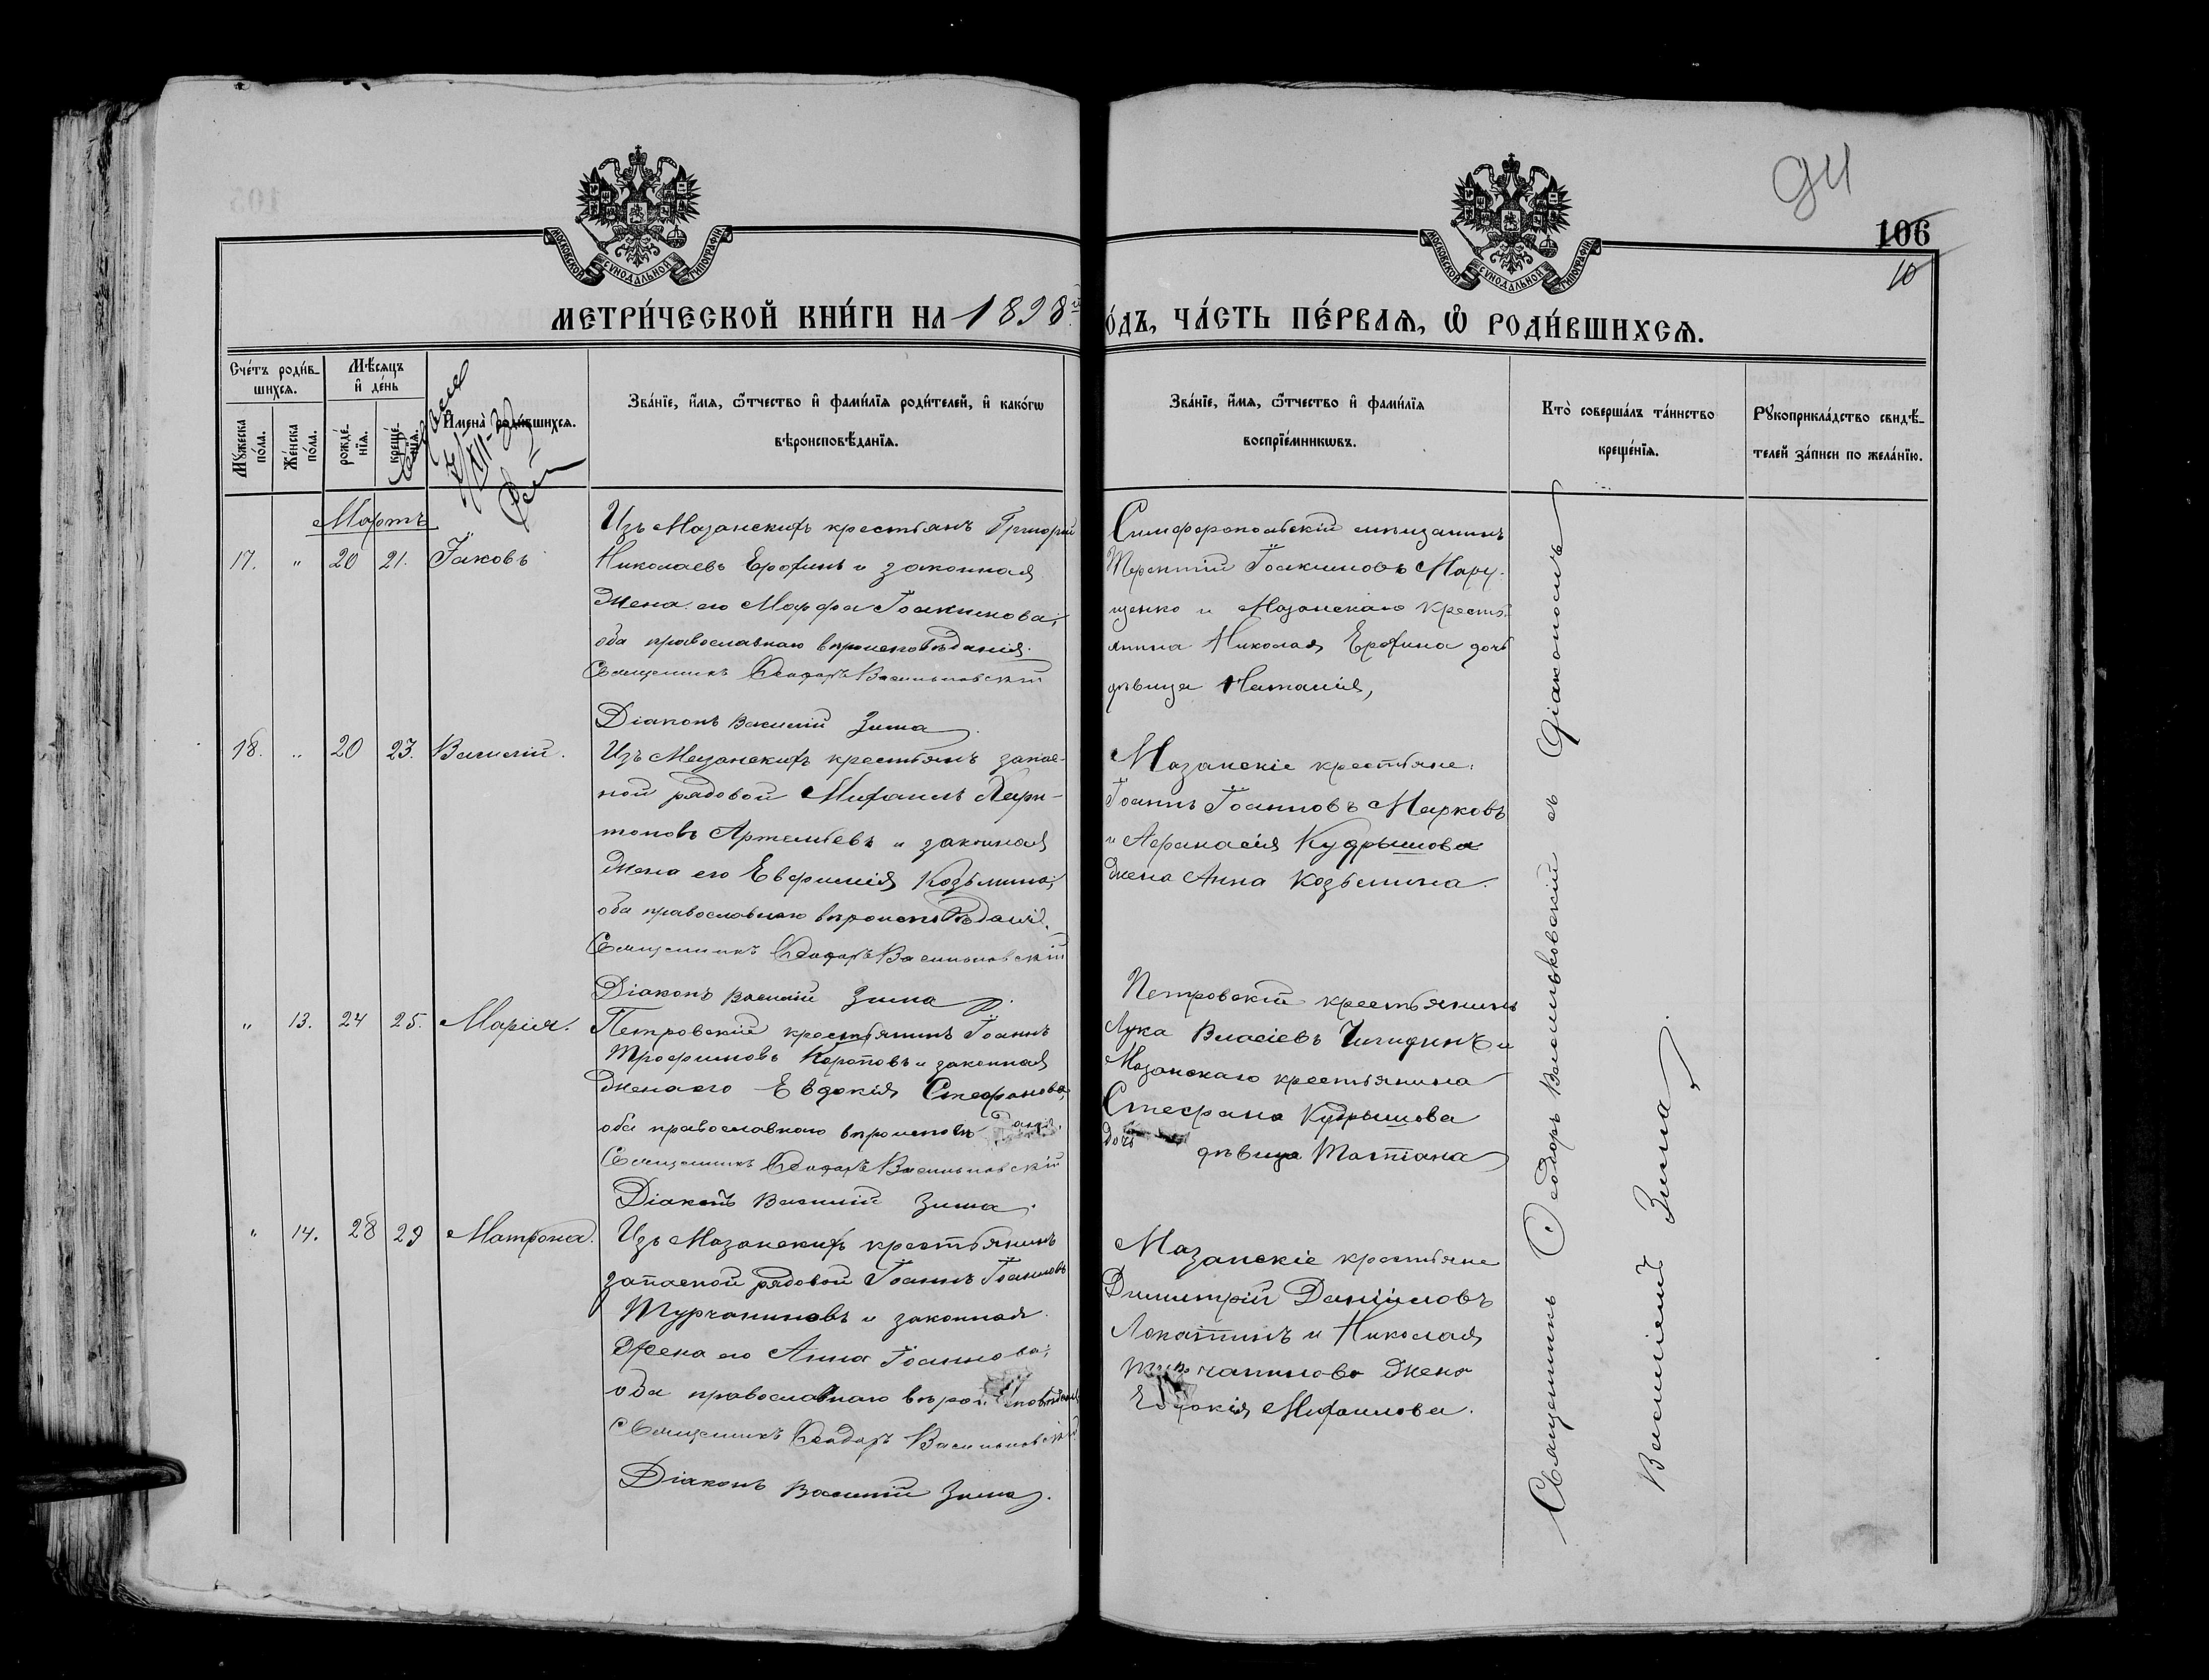 94
106
10
МОСКОВСКОЙ СУНОДАЛЬНОЙ ТИПОГРАФІИ
МОСКОВСКОЙ СУНОДАЛЬНОЙ ТИПОГРАФІИ
МЕТРИ́ЧЕСКОЙ КНИ́ГИ НА 1898й
О́ДЪ, ЧА́СТЬ ПЕ́РВАѦ, Ѽ РОДИ́ВШИХСѦ.
Сче́тъ роди́в-
шихсѧ.
Мꙋ́жеска по́ла.
Же́нска по́ла.
Мѣ́сѧцъ
и҆ де́нь
рожде́-
нїѧ.
креще́-
нїѧ.
И҆мена̀ роди́вшихсѧ.
Зва́нїе, и҆́мѧ, ѻ҆́тчество и҆ фами́лїѧ роди́телей, и҆ како́гѡ
вѣроисповѣ́данїѧ.
Зва́нїе, и҆́мѧ, ѻ҆́тчество и҆ фами́лїѧ
воспрїе́мникѡвъ.
Кто̀ соверша́лъ та́инство
креще́нїѧ.
Рꙋкоприкла́дство свидѣ́-
телей за́писи по жела́нїю.
Мартъ
17. " 20 21. Іаковъ
Изъ Мазанскихъ крестьянъ Григорій
Николаевъ Ерохинъ и законная
жена его Марфа Іоакимова;
оба православнаго вѣроисповѣданія.
Священникъ Ѳеодоръ Васильковскій
Діаконъ Василій Зима
Симферопольскій мѣщанинъ
Терентій Іоакимовъ Мару-
щенко и Мазанскаго кресть-
янина Николая Ерохина дочь
дѣвица Наталія,
18. " 20 23. Василій.
Изъ Мазанскихъ крестьянъ запас-
ной рядовой Михаилъ Хари-
тоновъ Артемьевъ и законная
жена его Евфимія Козьмина;
оба православнаго вѣроисповѣданія.
Священникъ Ѳеодоръ Васильковскій
Діаконъ Василій Зима
Мазанскіе крестьяне:
Іоаннъ Іоанновъ Марковъ
и Аѳанасія Кудрышова
жена Анна Козьмина.
" 13. 24 25. Марія.
Петровскій крестьянинъ Іоаннъ
Трофимовъ Коротовъ и законная
жена его Евдокія Стефанова,
оба православнаго вѣроисповѣданія.
Священникъ Ѳеодоръ Васильковскій
Діаконъ Василій Зима.
Петровскій крестьянинъ
Лука Власіевъ и
Мазанскаго крестьянина
Стефана Кудрышова
дочь дѣвица Татіана
" 14. 28 29 Матрона.
Изъ Мазанскихъ крестьянинъ
запасной рядовой Іоаннъ Іоанновъ
Турчаниновъ и законная
жена его Анна Іоаннова;
оба православнаго вѣроисповѣданія
Священникъ Ѳеодоръ Васильковскій
Діаконъ Василій Зима.
Мазанскіе крестьяне
Димитрій Даніиловъ
Лопатинъ и Николая
Турчанинова жена
Евдокія Михаилова.
Священникъ Ѳеодоръ Васильковскій съ Діакономъ
Василіемъ Зима